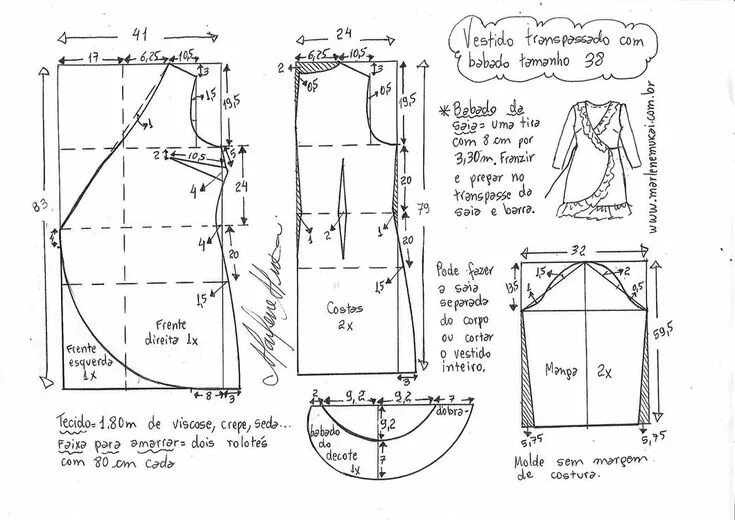 Vestido transpassado com
babado tamanho 38
41
17
6,25
10,5
3
1,5
19,5
1
2
10,5
5
4
24
4
83
4
20
1,5
Frente
direita 1x
Frente
esquerda
1x
8
3
24
6,25
10,5
2
0,5
3
0,5
19,5
20
79
1
2
1
20
1,5
Costas
2x
3
* Babado da
saia = uma tira
com 8 cm por
3,30m. Franzir
e prepar no
transpasse da
saia e barra.
www.marlenemukai.com.br
Pode fazer
a saia
separada
do corpo
ou cortar
o vestido
inteiro.
32
13,5
1,5
2
1
0,5
59,5
Manga
2x
5,75
5,75
Molde sem margem
de costura.
2
9,2
9,2
7
9,2
dobra
babado
do
decote
1x
7
Tecido = 1.80m de viscose, crepe, seda...
Faixa para amarrar = dois rolotês
com 80 cm cada